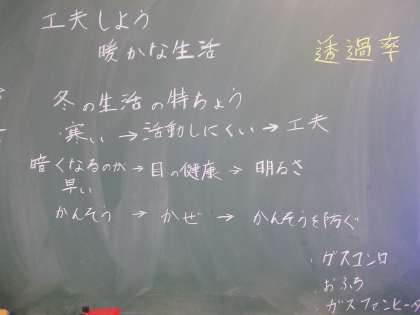 工夫しよう
暖かな生活
透過率
冬の生活の特ちょう
・寒い→活動しにくい→工夫
暗くなるのが→目の健康→明るさ
早い
かんそう→かぜ→かんそうを防ぐ
・ガスコンロ
・おふろ
・ガスファンヒータ